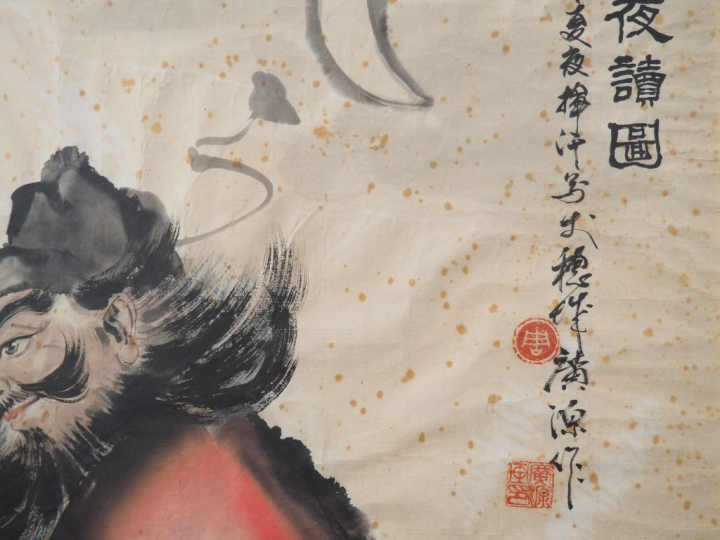 夜讀圖
夏夜揮汗寫於穗城廣源作